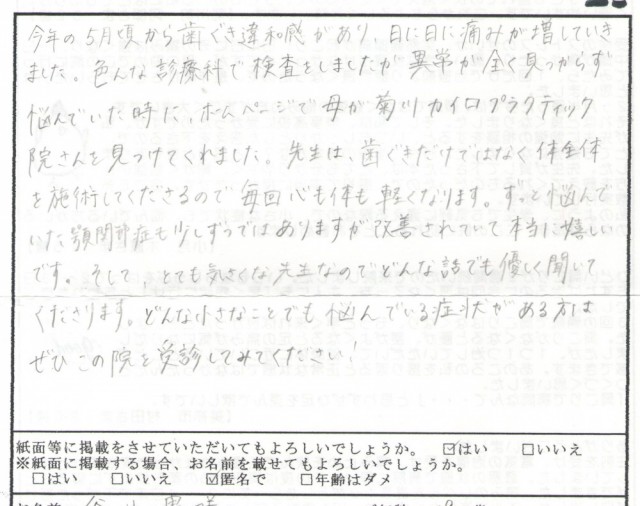 今年の5月頃から歯ぐき違和感があり、日に日に痛みが増していき
ました。色んな診療科で検査をしましたが異常が全く見つからず
悩んでいた時に、ホームページで母が菊川カイロプラクティック
院さんを見つけてくれました。先生は、歯ぐきだけではなく体全体
を施術してくださるので毎回心も体も軽くなります。ずっと悩んで
いた顎関節症も少しずつではありますが改善されていて本当に嬉しい
です。そして、とても気さくな先生なのでどんな話でも優しく聞いて
くださります。どんな小さなことでも悩んでいる症状がある方は
ぜひこの院を受診してみてください!
紙面等に掲載をさせていただいてもよろしいでしょうか。 ☑はい □いいえ
※紙面に掲載する場合、お名前を載せてもよろしいでしょうか。
□はい □いいえ ☑匿名で □年齢はダメ